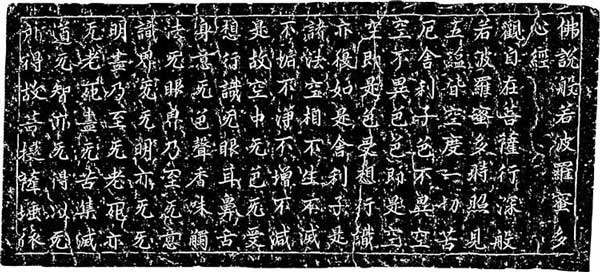 佛說般若波羅蜜多
心經
觀自在菩薩行深般
若波羅蜜多時照見
五蘊皆空度一切苦
厄舍利子色不異空
空不異色色即是空
空即是色受想行識
亦復如是舍利子是
諸法空相不生不滅
不垢不淨不增不減
是故空中无色无受
想行識无眼耳鼻舌
身意无色聲香味觸
法无眼界乃至无意
識界无无明亦无无
明盡乃至无老死亦
无老死盡无苦集滅
道无智亦无得以无
所得故菩提薩埵依